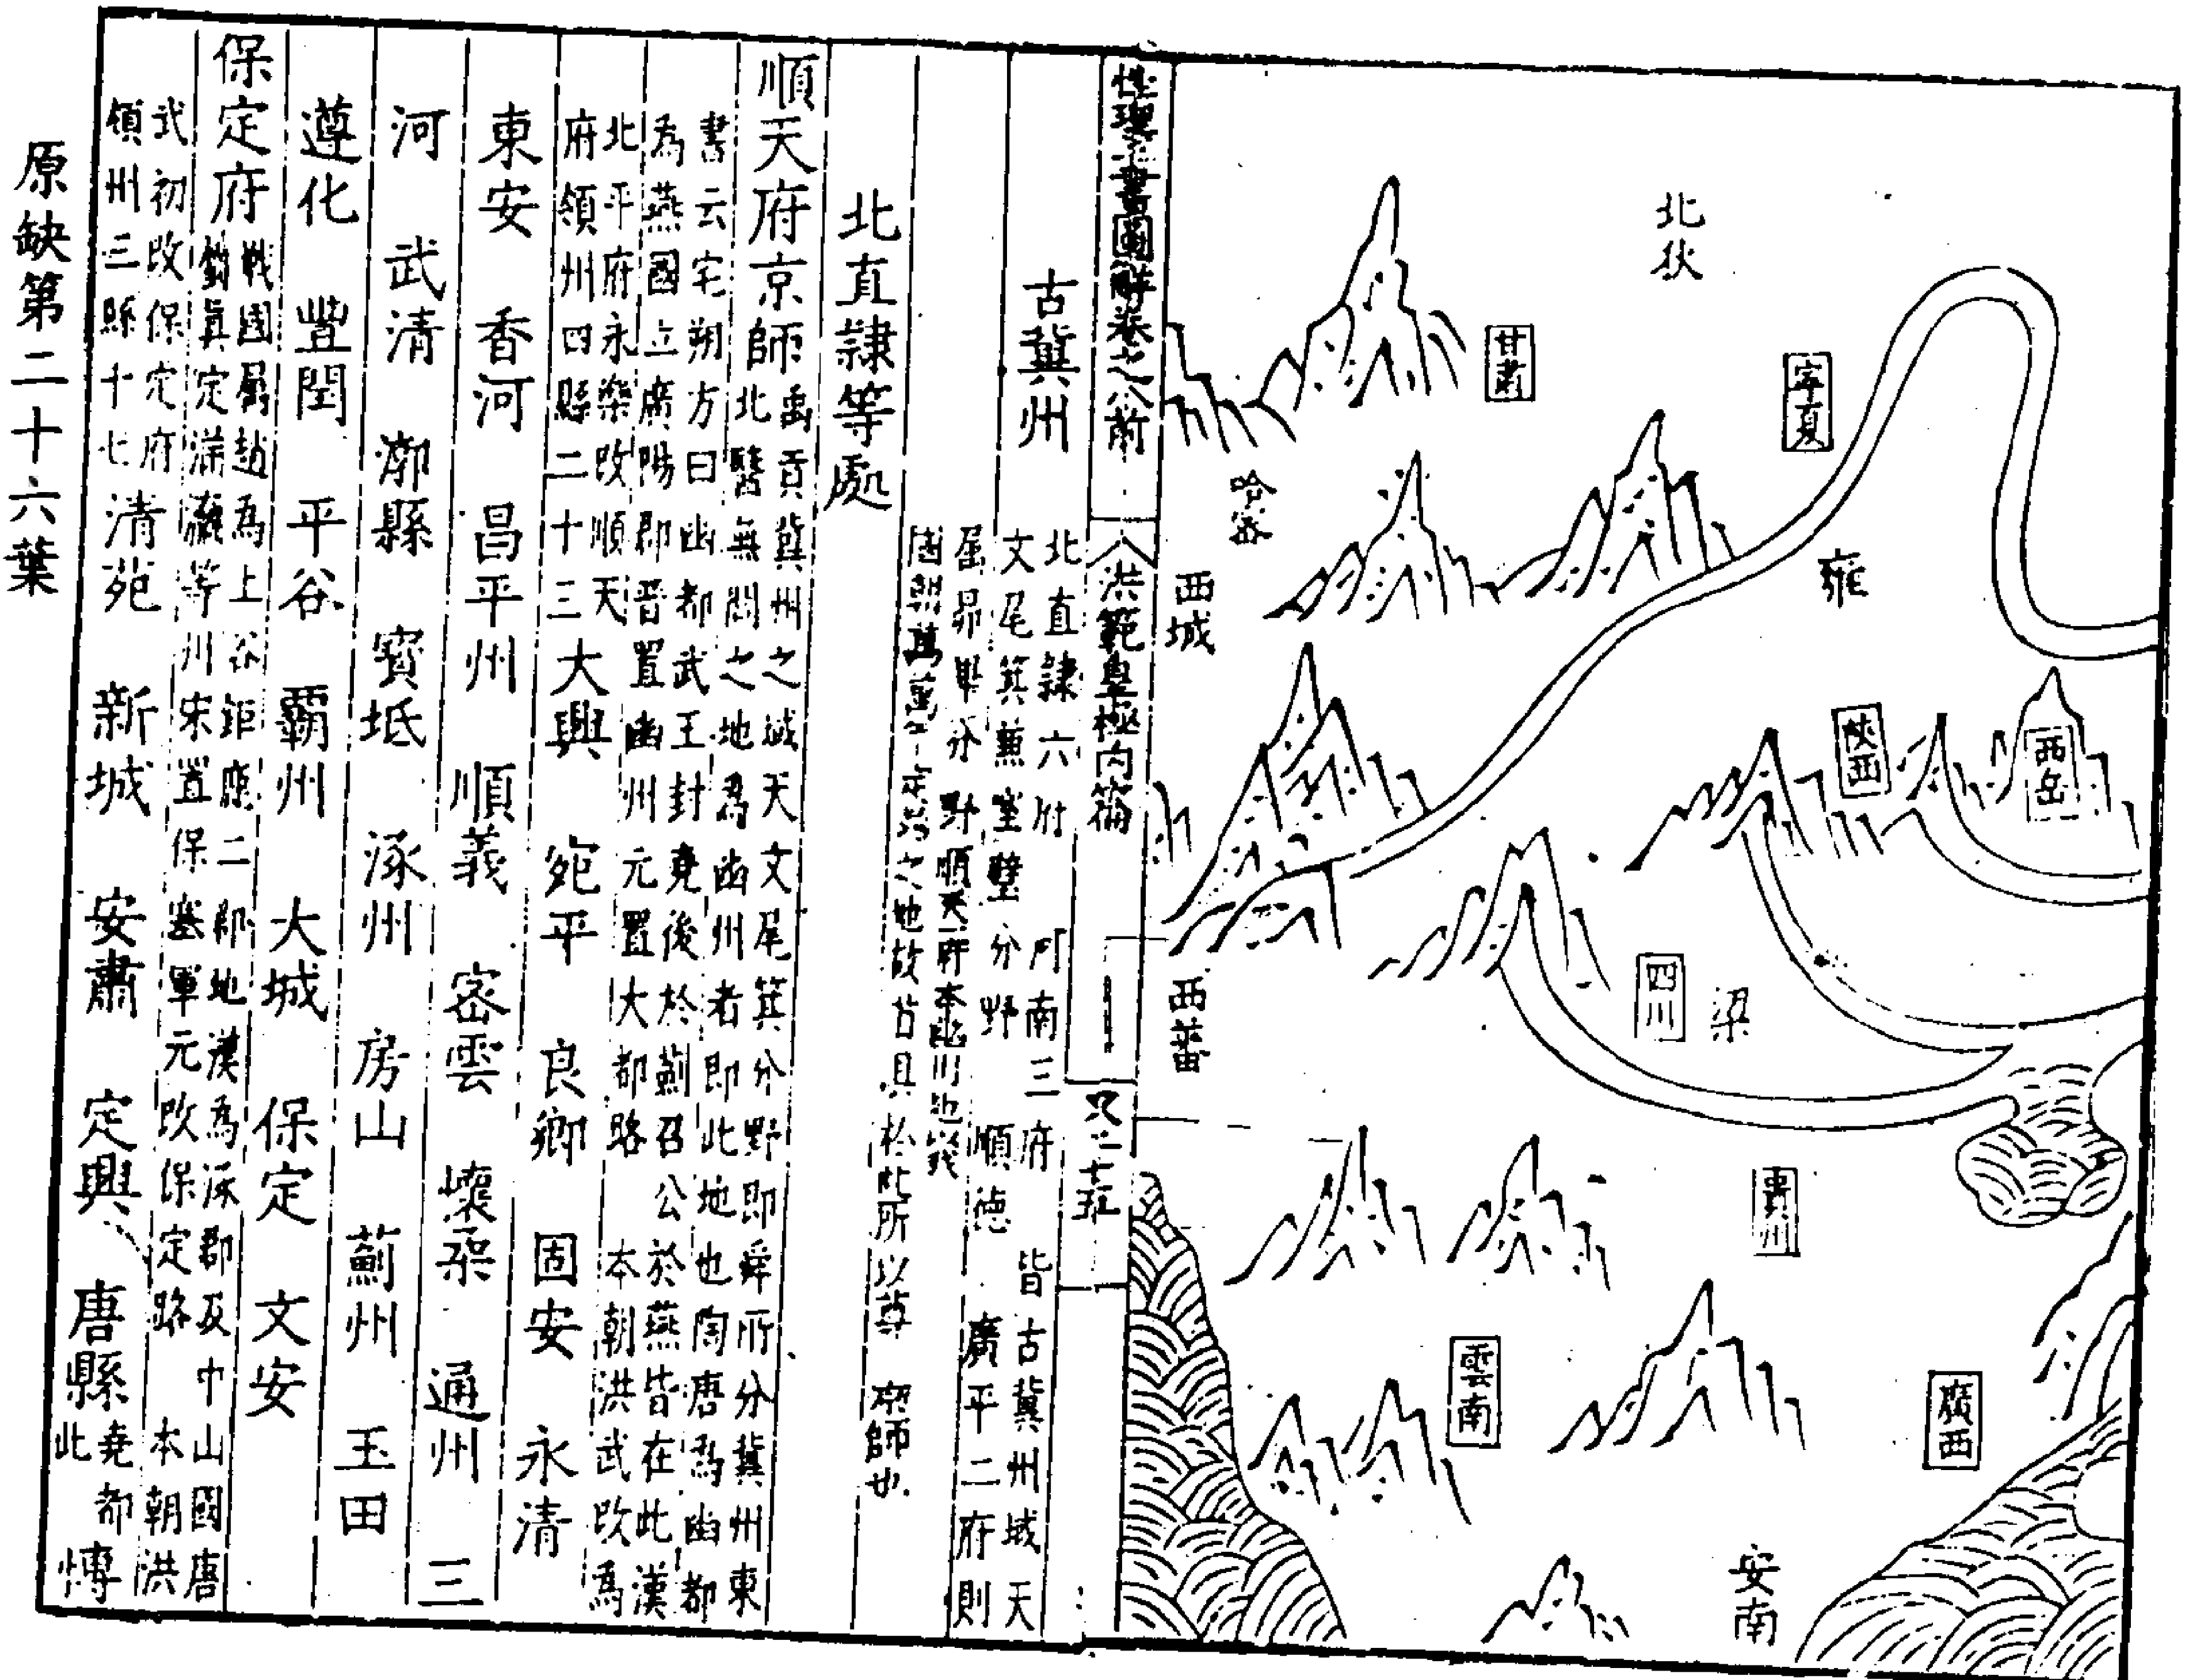 北狄
寧夏
甘肅
哈密
西域
雍
陝西
西岳
四川
梁
西蕃
貴州
雲南
廣西
安南
性理全書圖解卷之八前
洪範皇極內篇
又二十五
古冀州
北直隸六府 河南三府 皆古冀州域天
文尾箕兼室壁分野 順德 廣平二府則
屬昴畢分野順天府本幽州也我
國朝萬萬年定鼎之地故首具於此所以尊 京師也
北直隸等處
順天府京師
禹貢冀州之域天文尾箕分野即舜所分冀州東
北醫無閭之地為幽州者即此地也陶唐為幽都
書云宅朔方曰幽都武王封堯後於薊召公於燕皆在此漢
為燕國立廣陽郡晉置幽州元置大都路 本朝洪武改為
北平府永樂改順天
府領州四縣二十三
大興 宛平 良鄉 固安 永清
東安 香河 昌平州 順義 密雲 懷柔 通州 三
河 武清 漷縣 寶坻 涿州 房山 薊州 玉田
遵化 豐閏 平谷 霸州 大城 保定 文安
保定府
戰國屬趙為上谷鉅鹿二郡地漢為涿郡及中山國唐
猶眞定滿瀛等州宋置保塞軍元改保定路 本朝洪
武初改保定府
領州三縣十七
清苑 新城 安肅 定興 唐縣
堯都
此
慱
原缺第二十六葉